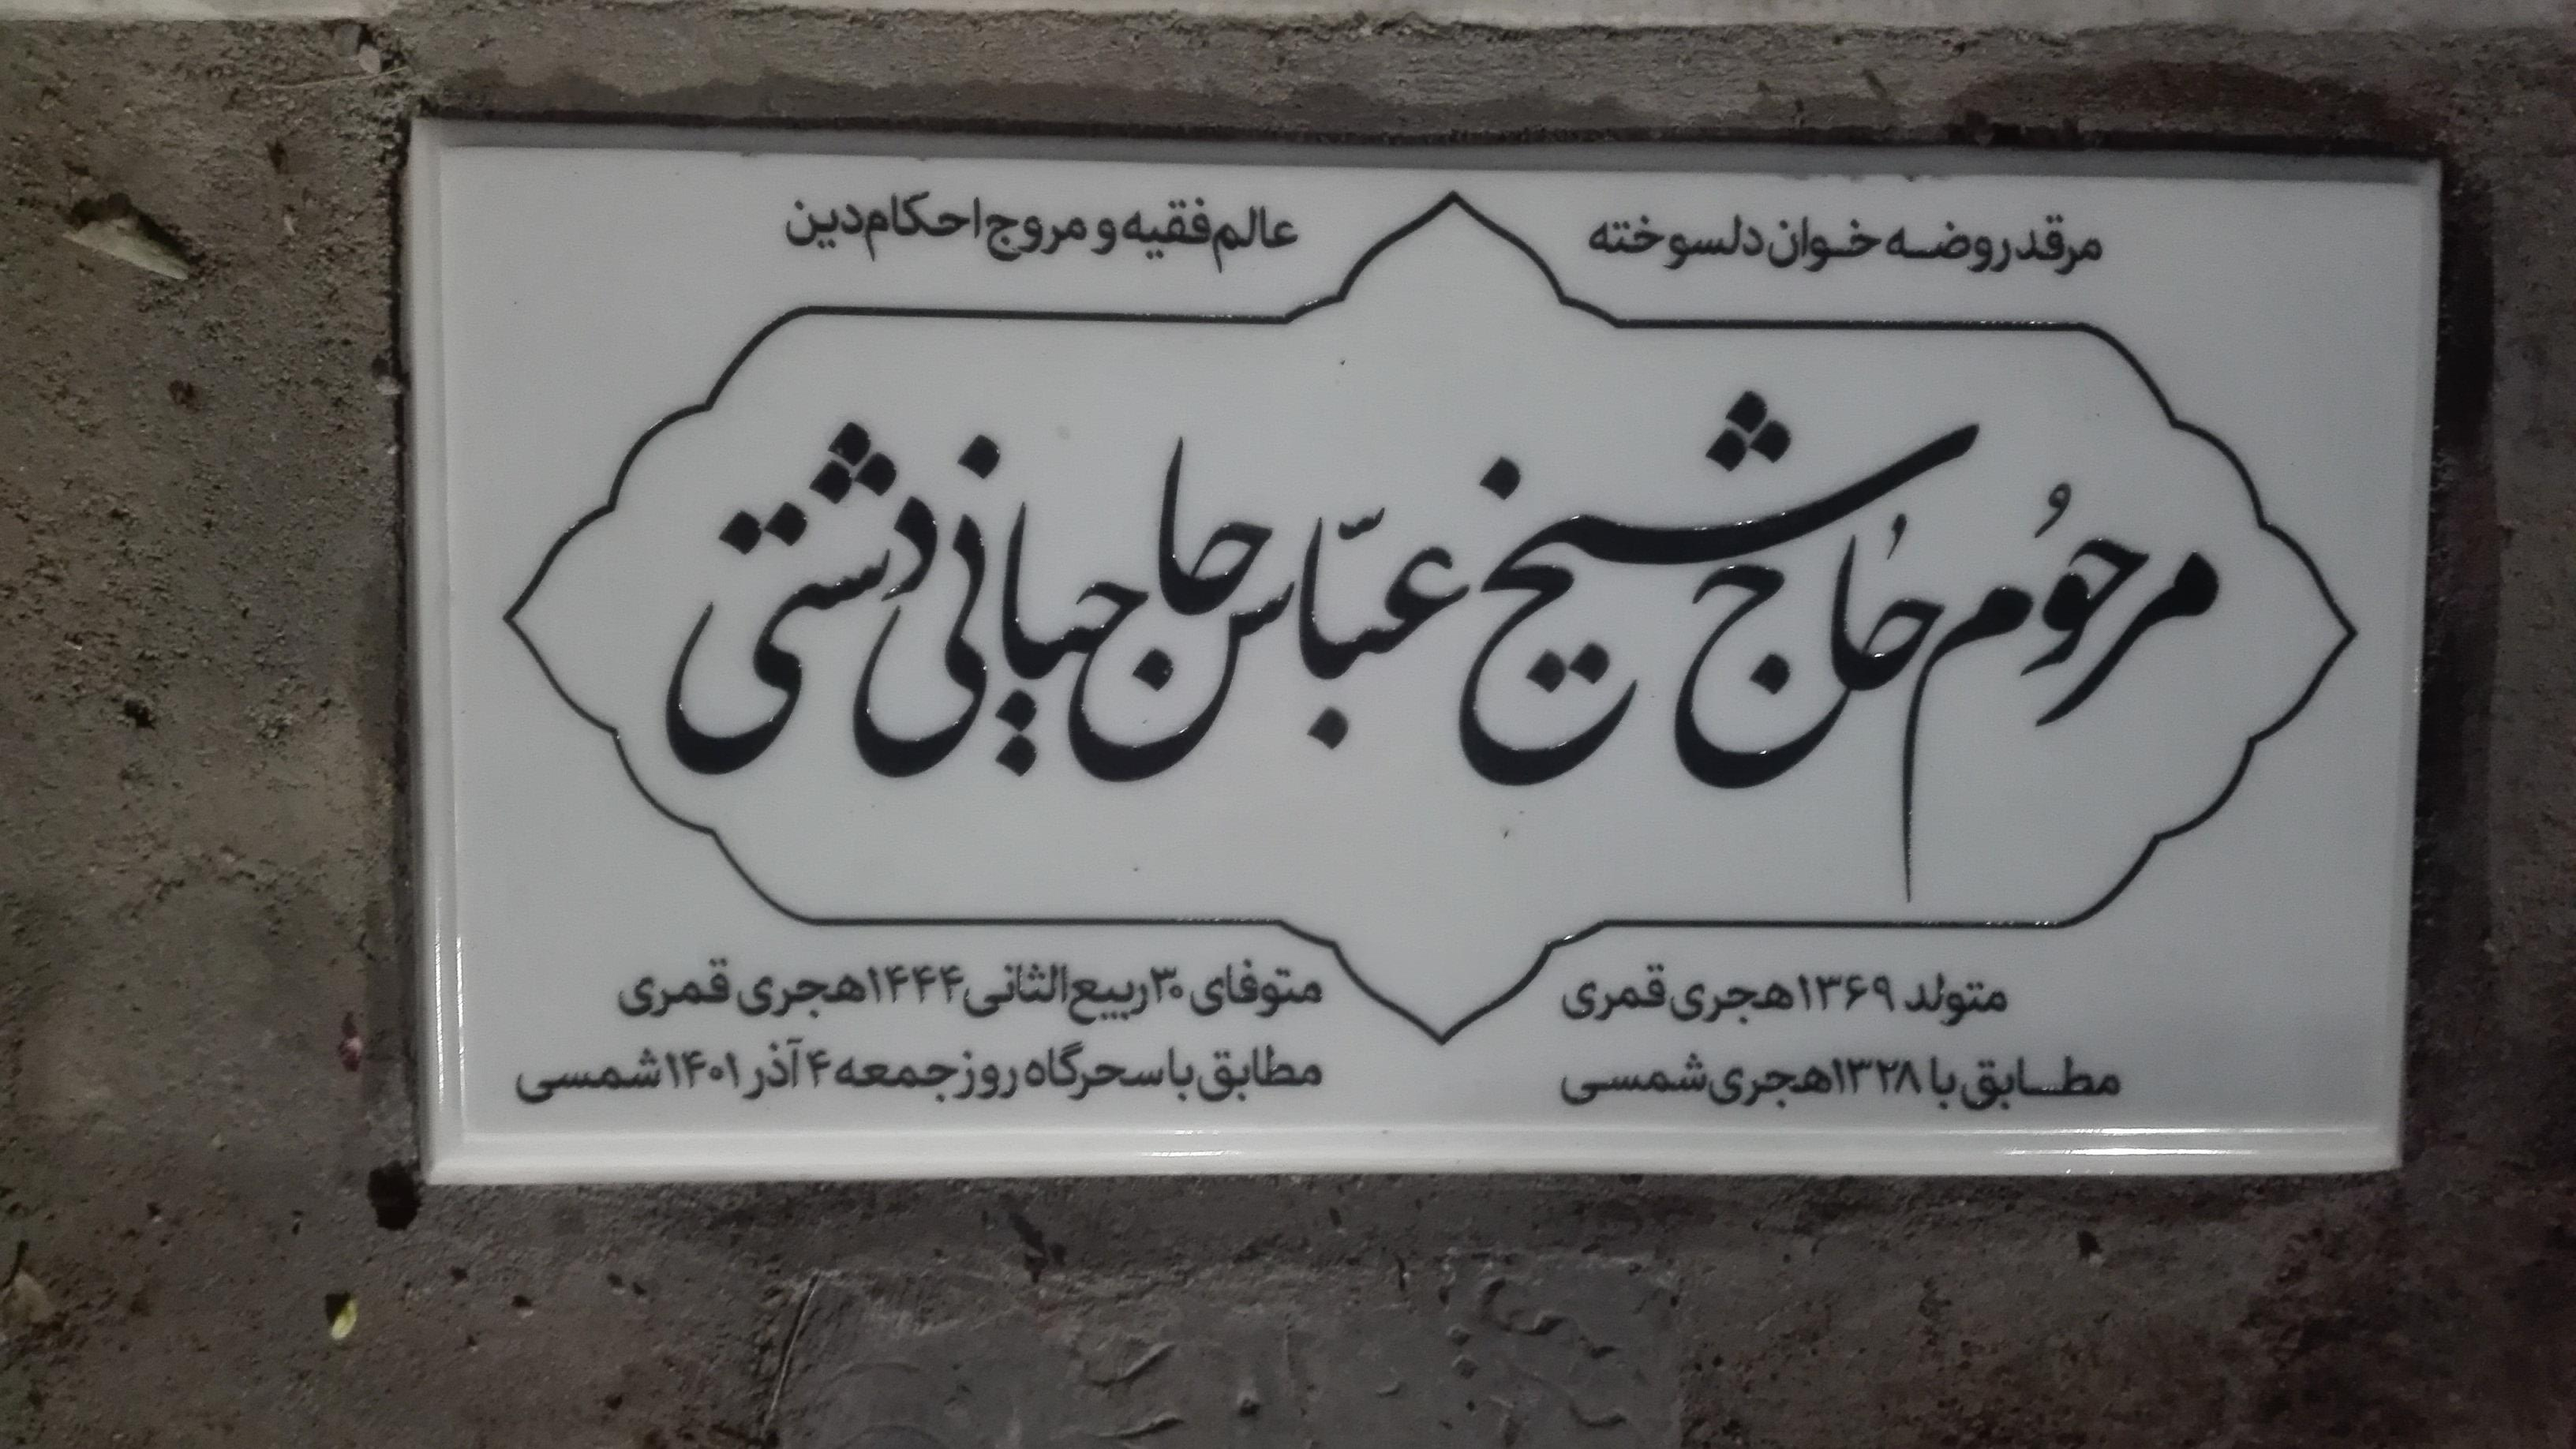 مرقد روضه خوان دلسوخته
عالم فقیه و مروج احکام دین
مرحوم حاج شیخ عباس حاجیانی دشتی
متولد ۱۳۶۹ هجری قمری
مطابق با ۱۳۲۸ هجری شمسی
متوفای ۳۰ ربیع الثانی ۱۴۴۴ هجری قمری
مطابق با سحرگاه روز جمعه ۴ آذر ۱۴۰۱ شمسی